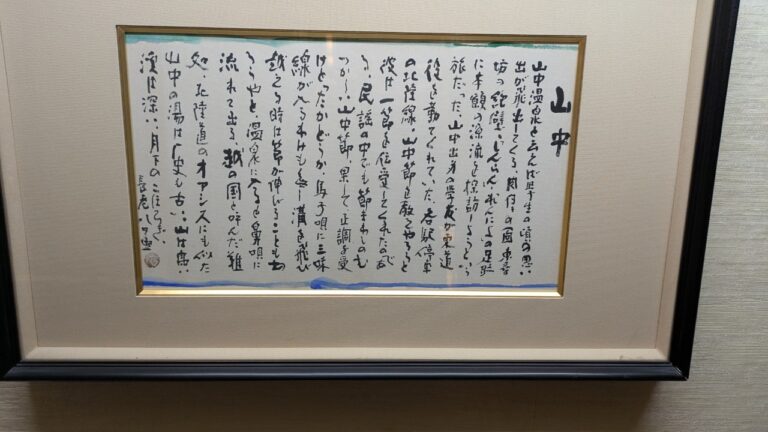 山中
山中温泉と云えば学生の頃の思い
出が飛出してくる
坊の絶壁
に本願の源流を探訪しようという
旅だった、山中出身の学友が東道
役を勤てくれていた、各駅停車
の北陸線、山中節を教てやろうと
彼は一節を伝受してくれたのだ
る、民謡の中でも節まわしのむ
つかしい山中節、果して正調を受
けとったかどうか、馬子唄に三味
線が入るわけもなし、溝を飛び
越える時は節が伸びることもあ
ろうやと、温泉に入ると鼻唄に
流れて出る、越の国と呼んだ難
処、北陸道のオアシスにも似た
山中の湯は歴史も古い、山は高い
渓は深い、月下のこほろぎ、